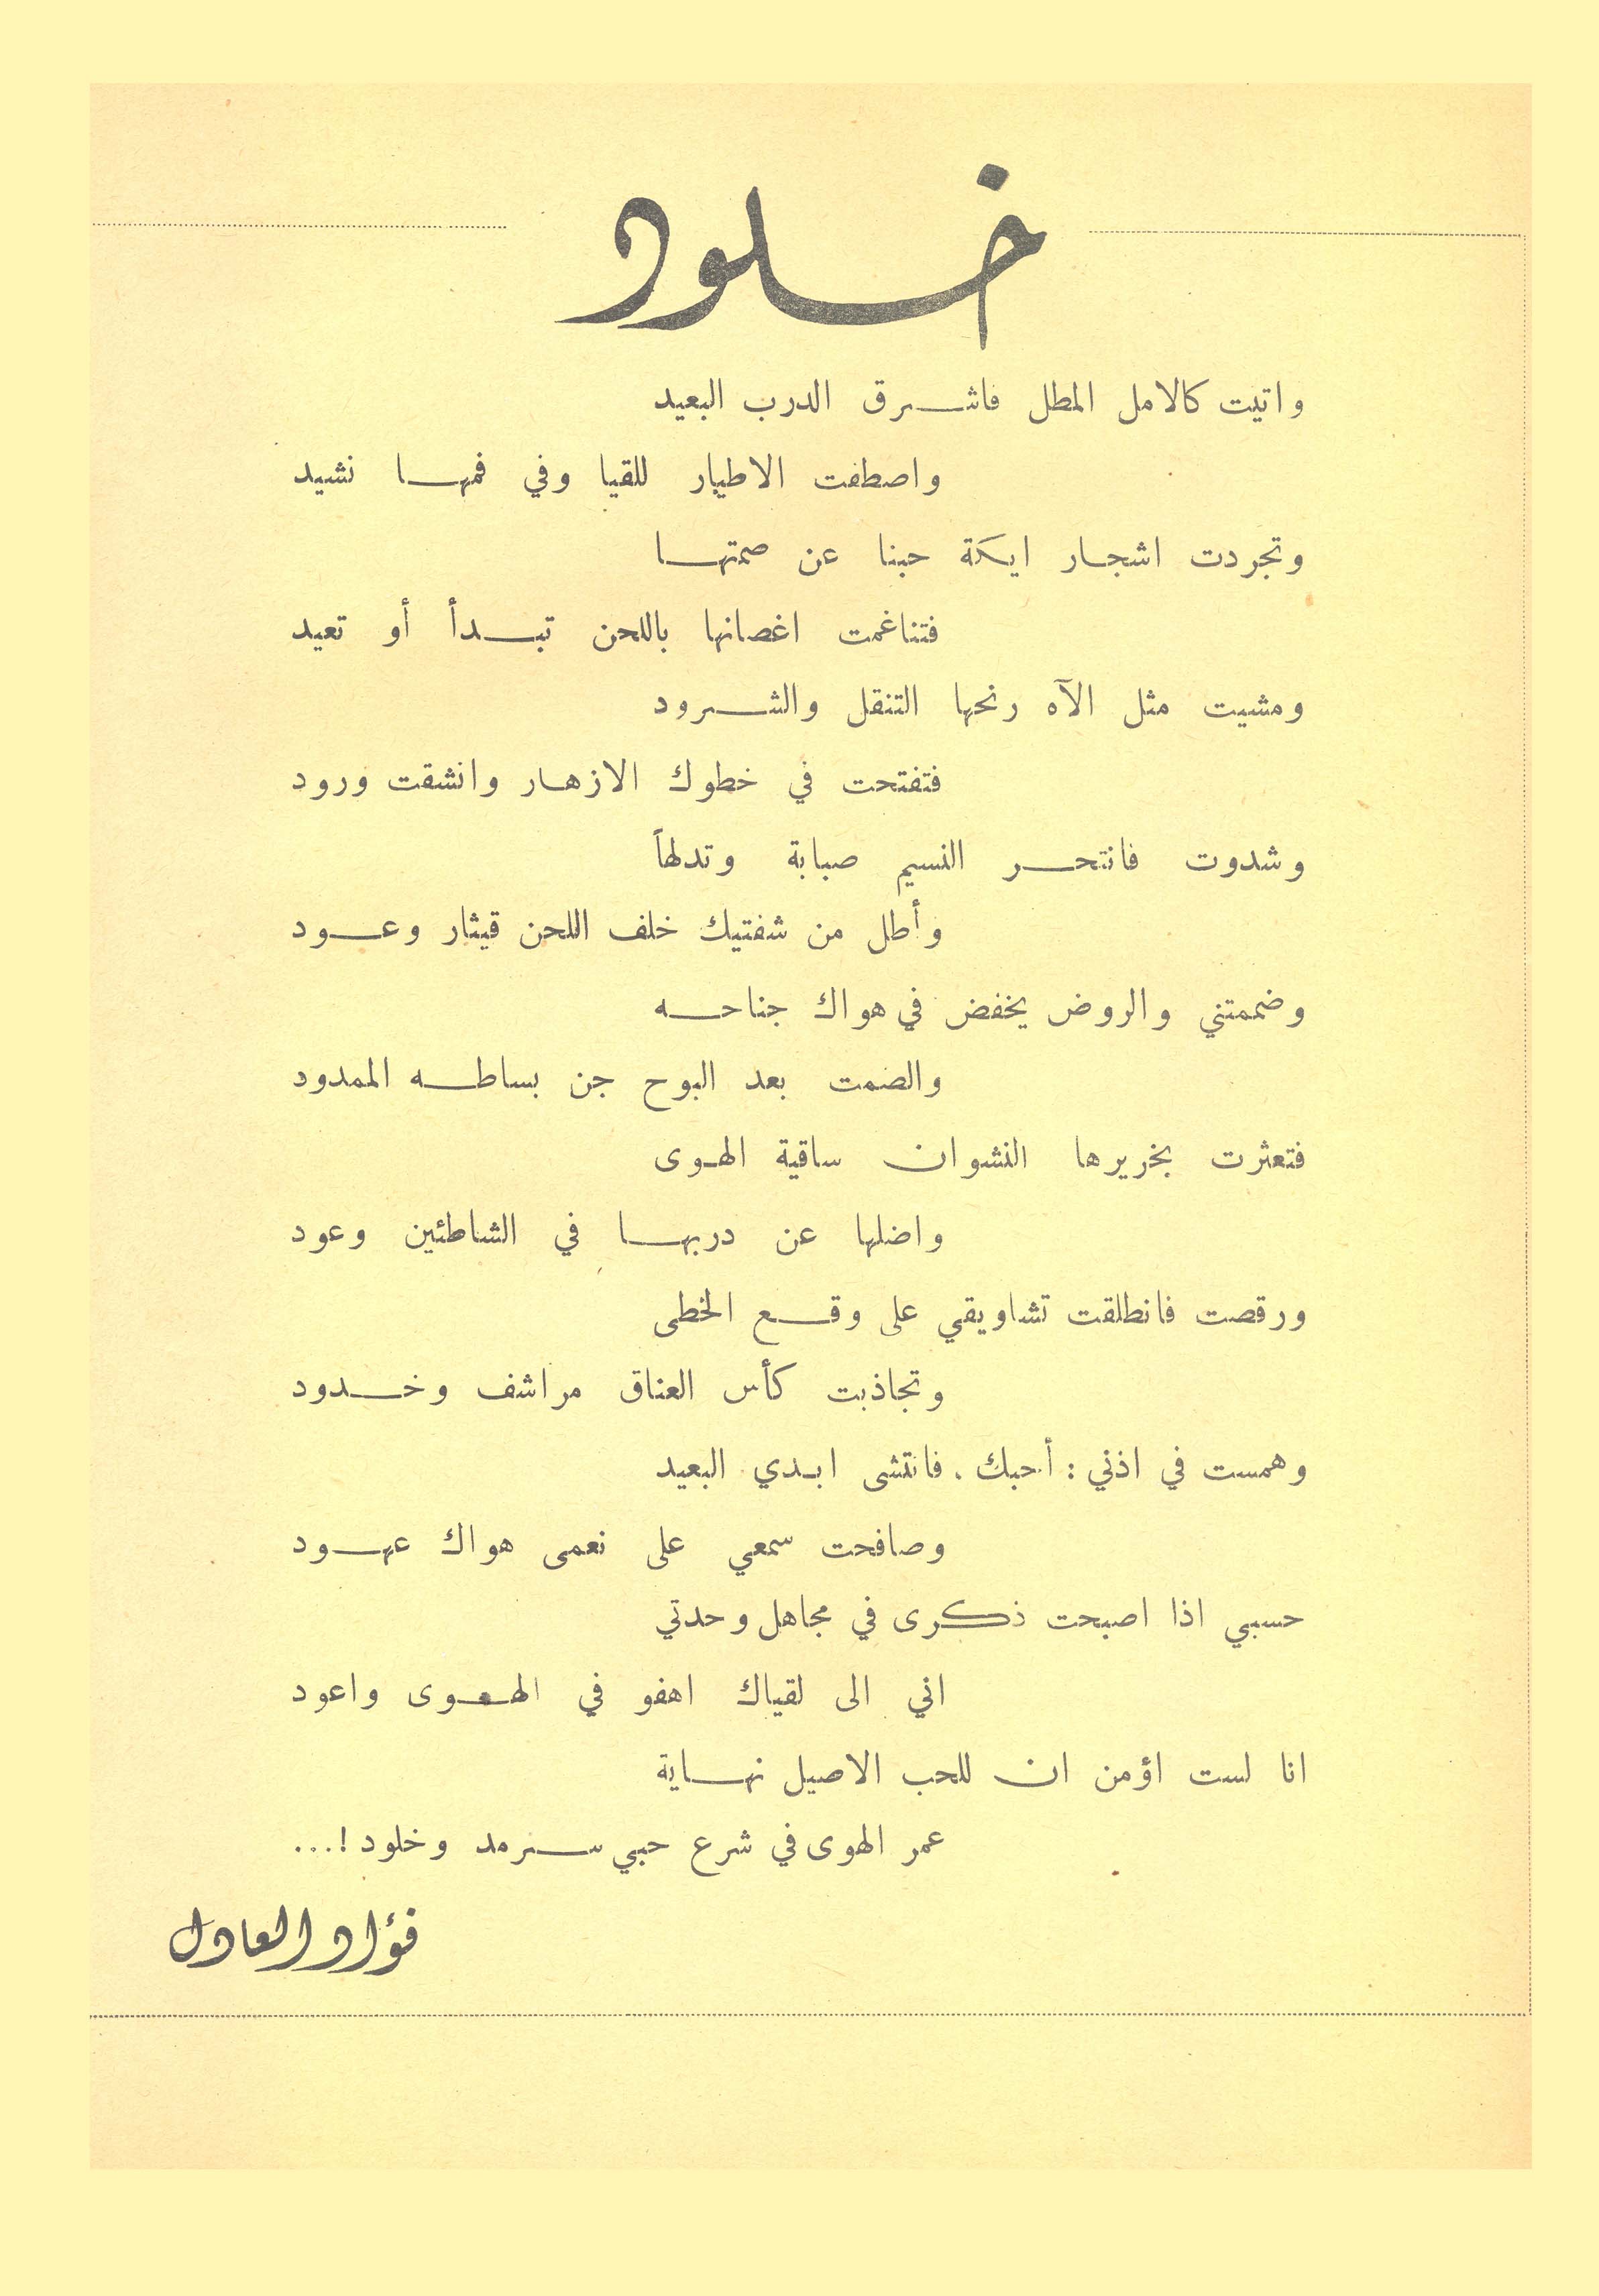 خلود
واتيت كالامل المطل فاشرق الدرب البعيد
واصطفت الاطيار للقيا وفي فمها نشيد
وتجردت اشجار ايكة حبنا عن صمتها
فتناغمت اغصانها باللحن تبدأ أو تعيد
ومشيت مثل الآه رنحها التنقل والشرود
فتفتحت في خطوك الازهار وانشقت ورود
وشدوت فانتحر النسيم صبابة وتدلهاً
وأطل من شفتيك خلف اللحن قيثار وعود
وضممتني والروض يخفض في هواك جناحه
والصمت بعد البوح جن بساطه الممدود
فتعثرت بخريرها النشوان ساقية الهوى
واضلها عن دربها في الشاطئين وعود
ورقصت فانطلقت تشاويقي على وقع الخطى
وتجاذبت كأس العناق مراشف وخدود
وهمست في اذني : أحبك . فانتشى ابدي البعيد
وصافحت سمعي على نعمى هواك عهود
حسبي اذا اصبحت ذكرى في مجاهل وحدتي
اني الى لقياك اهفو في الهوى واعود
انا لست اؤمن ان للحب الاصيل نهاية
عمر الهوى في شرع حبي سرمد وخلود !...
فؤاد العادل